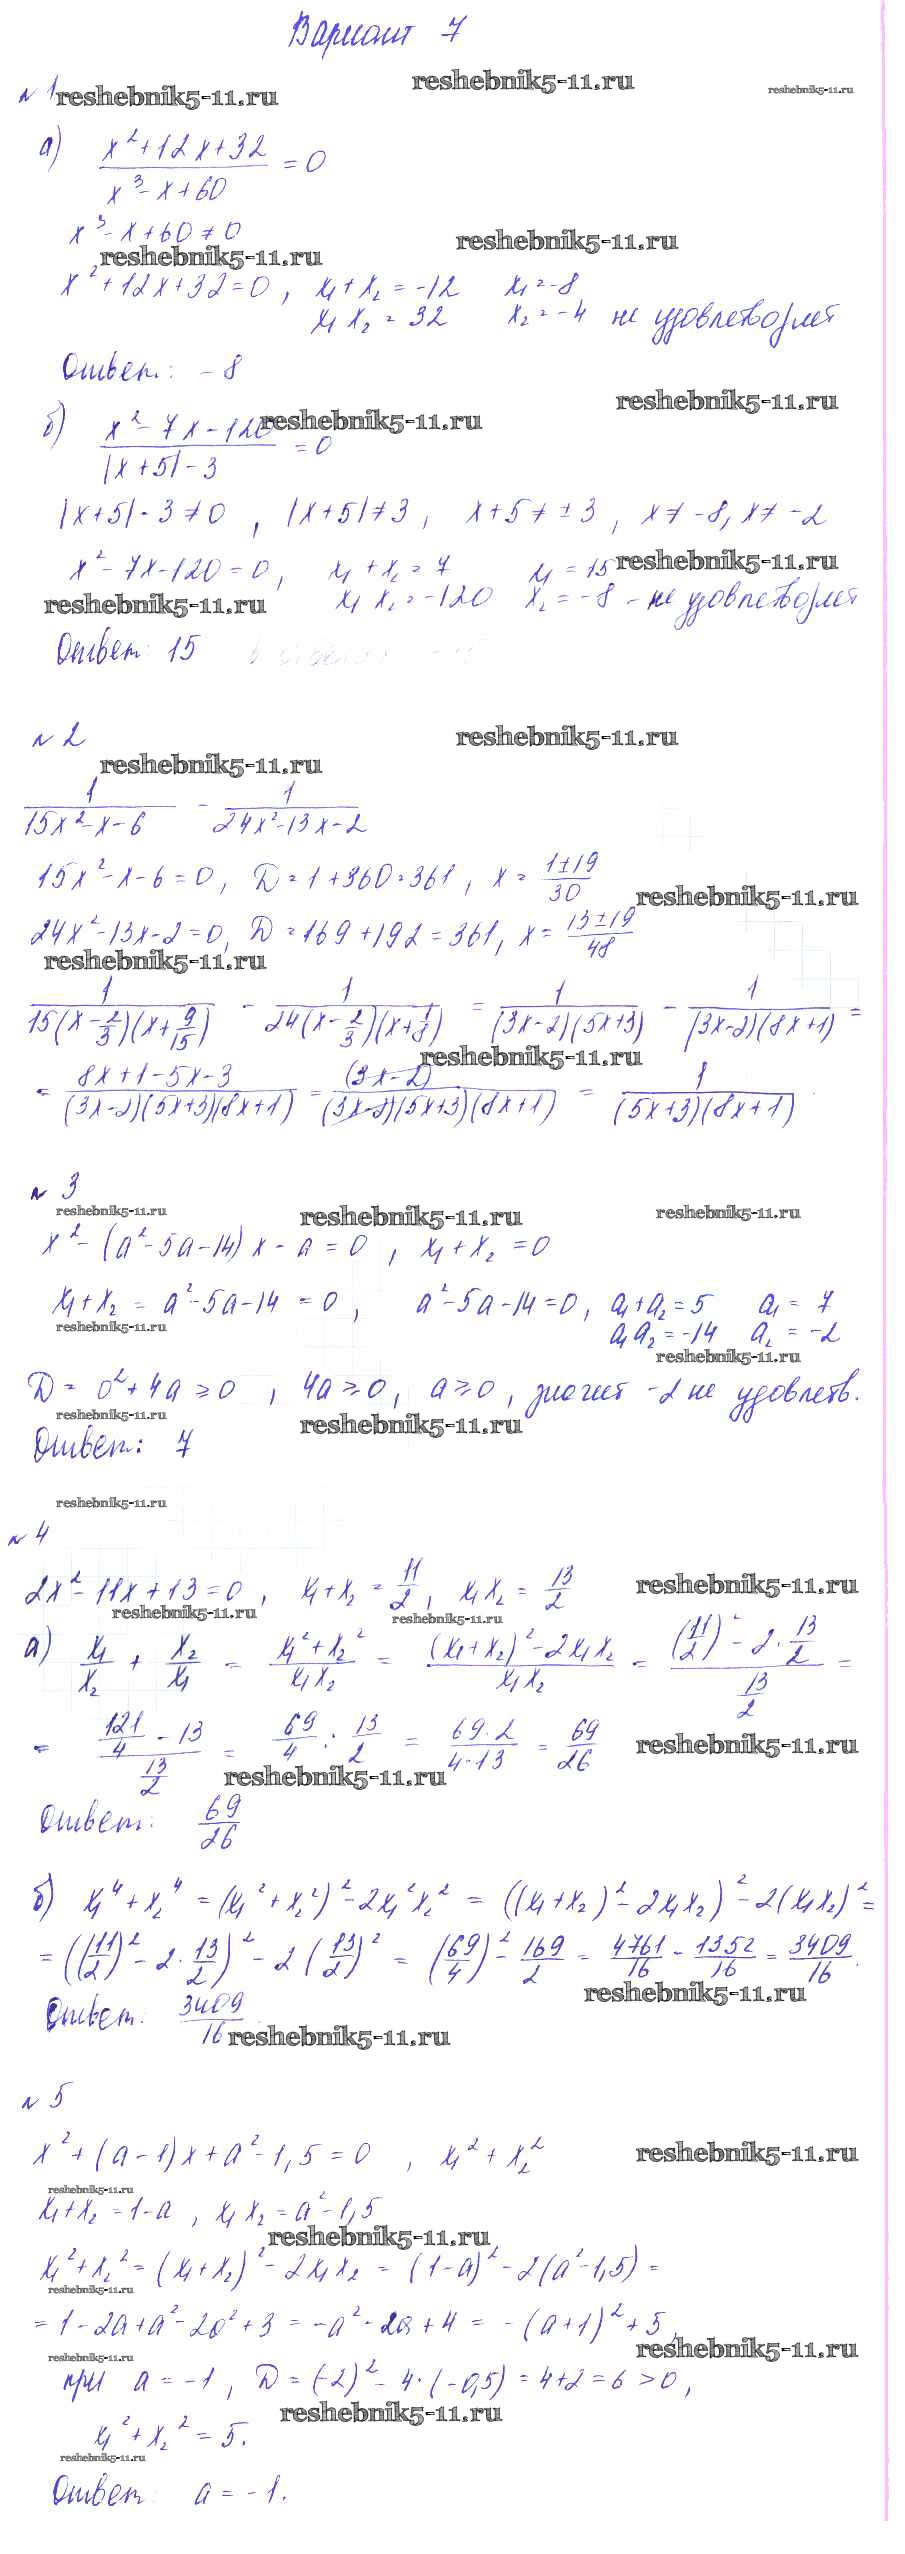 Вариант 7
№ 1 reshebnik5-11.ru reshebnik5-11.ru reshebnik5-11.ru
а) (x²+12x+32)/(x³-x+60) = 0
x³-x+60≠0 reshebnik5-11.ru
reshebnik5-11.ru
x²+12x+32=0, x₁+x₂=-12 x₁=-8
x₁x₂=32 x₂=-4 не удовлетворяет
Ответ: -8
reshebnik5-11.ru
б) (x²-7x-120)/(|x+5|-3) = 0 reshebnik5-11.ru
|x+5|-3≠0, |x+5|≠3, x+5≠±3, x≠-8, x≠-2
x²-7x-120=0, x₁+x₂=7 x₁=15 reshebnik5-11.ru
reshebnik5-11.ru x₁x₂=-120 x₂=-8 - не удовлетворяет
Ответ: 15
№ 2 reshebnik5-11.ru
reshebnik5-11.ru
1/(15x²-x-6) - 1/(24x²-13x-2)
15x²-x-6=0, D=1+360=361, x=(1±19)/30 reshebnik5-11.ru
24x²-13x-2=0, D=169+192=361, x=(13±19)/48
reshebnik5-11.ru
1/(15(x-2/3)(x+9/15)) - 1/(24(x-2/3)(x+1/8)) = 1/((3x-2)(5x+3)) - 1/((3x-2)(8x+1)) =
reshebnik5-11.ru
= (8x+1-5x-3)/((3x-2)(5x+3)(8x+1)) = (3x-2)/((3x-2)(5x+3)(8x+1)) = 1/((5x+3)(8x+1)).
№ 3
reshebnik5-11.ru reshebnik5-11.ru reshebnik5-11.ru
x²-(a²-5a-14)x-a=0, x₁+x₂=0
x₁+x₂=a²-5a-14=0, a²-5a-14=0, a₁+a₂=5 a₁=7
reshebnik5-11.ru a₁a₂=-14 a₂=-2
reshebnik5-11.ru
D=0²+4a≥0, 4a≥0, a≥0, значит -2 не удовлетв.
reshebnik5-11.ru reshebnik5-11.ru
Ответ: 7
reshebnik5-11.ru
№ 4
2x²-11x+13=0, x₁+x₂=11/2, x₁x₂=13/2 reshebnik5-11.ru
reshebnik5-11.ru reshebnik5-11.ru
а) x₁/x₂ + x₂/x₁ = (x₁²+x₂²)/(x₁x₂) = ((x₁+x₂)²-2x₁x₂)/(x₁x₂) = ((11/2)²-2·13/2)/(13/2) =
= (121/4-13)/(13/2) = 69/4 : 13/2 = (69·2)/(4·13) = 69/26 reshebnik5-11.ru
reshebnik5-11.ru
Ответ: 69/26
б) x₁⁴+x₂⁴=(x₁²+x₂²)²-2x₁²x₂²=((x₁+x₂)²-2x₁x₂)²-2(x₁x₂)²=
=((11/2)²-2·13/2)²-2(13/2)²=(69/4)²-169/2=4761/16-1352/16=3409/16.
reshebnik5-11.ru
Ответ: 3409/16 reshebnik5-11.ru
№ 5
x²+(a-1)x+a²-1,5=0, x₁²+x₂² reshebnik5-11.ru
reshebnik5-11.ru
x₁+x₂=1-a, x₁x₂=a²-1,5
reshebnik5-11.ru
x₁²+x₂²=(x₁+x₂)²-2x₁x₂=(1-a)²-2(a²-1,5)=
reshebnik5-11.ru
=1-2a+a²-2a²+3=-a²-2a+4=-(a+1)²+5,
reshebnik5-11.ru reshebnik5-11.ru
при a=-1, D=(-2)²-4·(-0,5)=4+2=6>0,
reshebnik5-11.ru
x₁²+x₂²=5.
reshebnik5-11.ru
Ответ: a=-1.